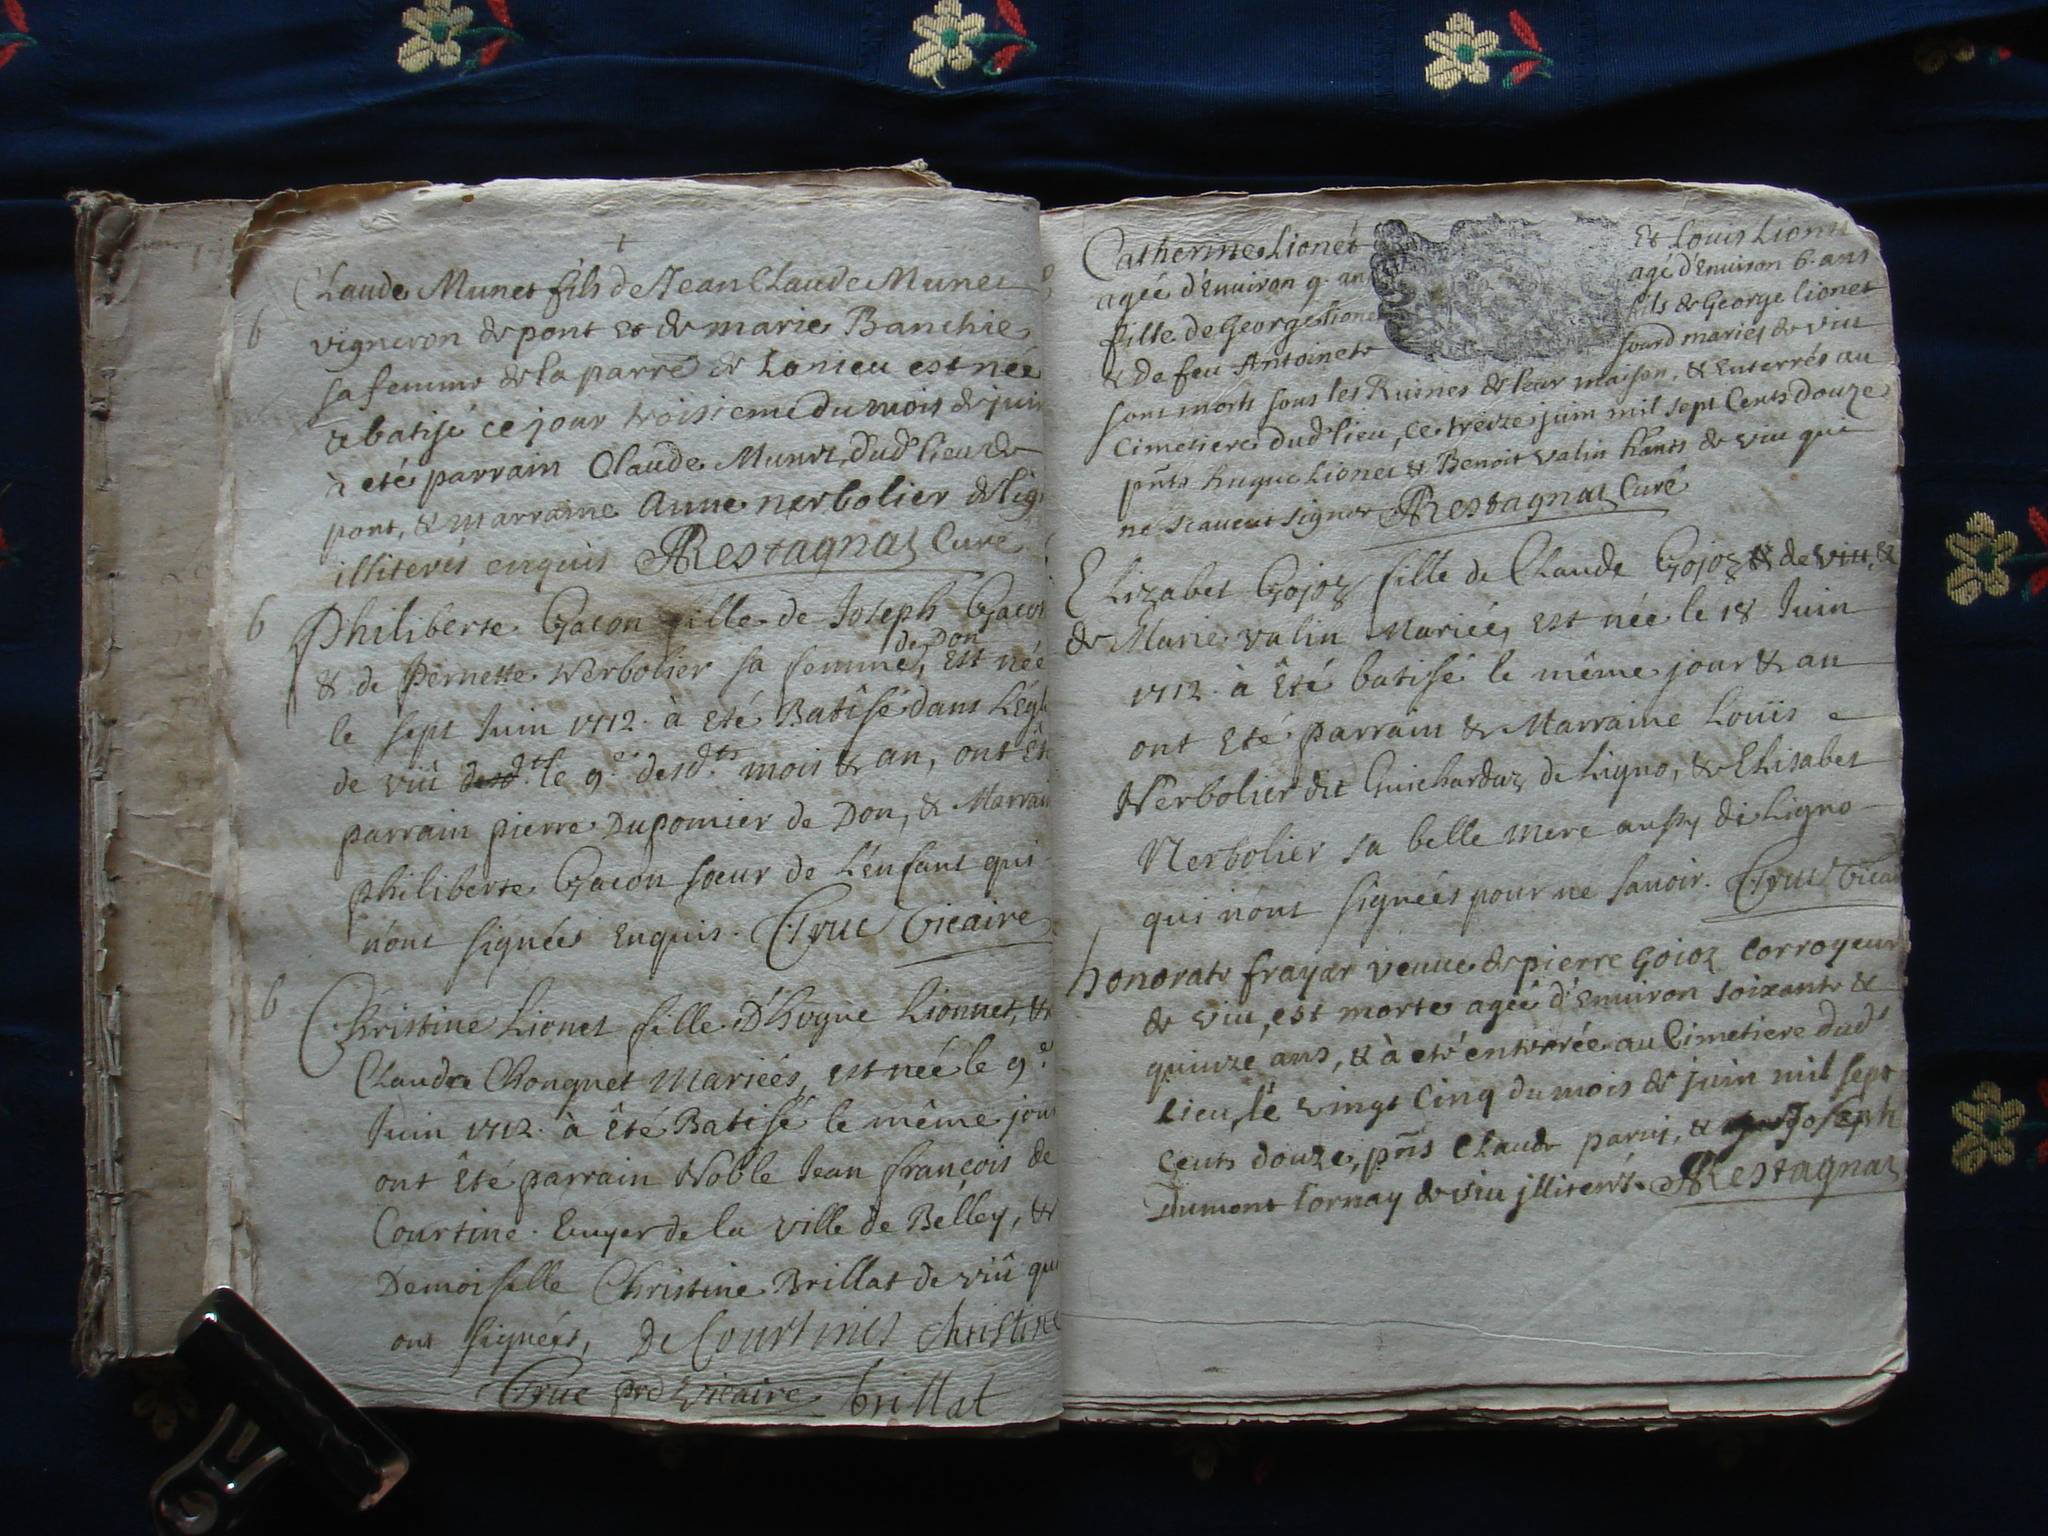 Claude Munet fils de Jean Claude Munet
b
vigneron de pont et de marie Banchie
sa femme de la parre de Lonieu est née
& batisé ce jour troisieme du mois de juin
à eté parrain Claude Munet dud lieu de
pont, & marraine Anne nerbolier de lig
illiterés enquis Restagnat Curé
b
Philiberte Gacon fille de Joseph Gacon
de Don
& de Pernette Nerbolier sa femme, est née
le sept Juin 1712. à eté Batisé dans L'égl
de viû le 9e desdts mois & an, ont êt
parrain pierre Dupomier de Don, & Marrain
philiberte Gacon soeur de L'enfant qui
n'ont signées enquis. Truc Vicaire
b
Christine Lionet fille D'hugue Lionnet, &
Claudre Chonquet Mariées, est née le 9e
Juin 1712. à êté Batisé le même jour
ont êté parrain Noble Jean françois de
Courtine. Ecuyer de la ville de Belley, &
Demoiselle Christine Brillat de viû qui
ont signées, De Courtines christine
Truc pre vicaire brillat
Catherine Lionet
agée d'Environ 9. an
fille de George Lione
& de feu Antoinete
Et Louis Lionet
agé d'Environ 6. ans
fils de George Lionet
sourd mariés de viu
sont morts sous les Ruines de leur maison, & Enterrés au
Cimetiere dud lieu, ce treize juin mil sept Cents Douze
pnts hugue Lionet & Benoit valin hants de viu qui
ne scauent signer Restagnat Curé
Elizabet Gojoz fille de Claude Gojoz de viu, &
de Marie valin Mariée, est née le 18 Juin
1712. à êté batisé le même jour & an
ont êté parrain & Marraine Louïs
Nerbolier dit Guichardaz de Ligno, & Elisabet
Nerbolier sa belle mere aussy de Ligno
qui n'ont signées pour ne savoir. Truc Vicai
honorate frayer veuue de pierre Goioz Corroyeur
de viu, est morte agée d'Environ soixante &
quinze ans, & à eté enterrée au Cimetiere dud
Lieu, le vingt Cinq du mois de juin mil sept
Cents douze, pnts Claude parny, & Joseph
Dumont tornay de viu jlliterés. Restagnat